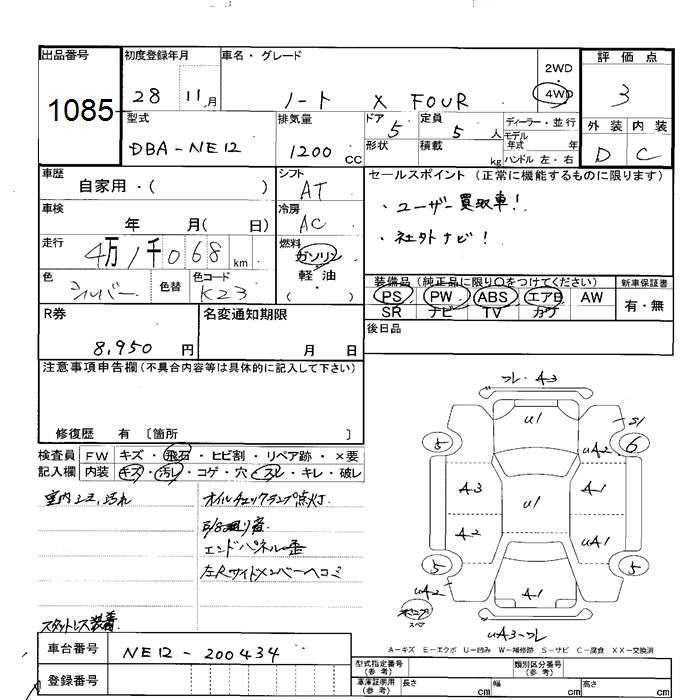 出品番号
1085
初度登録年月
28 年 11 月
車名・グレード
ノート X FOUR
2WD
・
4WD
評価点
3
外装 内装
D C
型式
DBA-NE12
排気量
1200 CC
ドア
5
定員
5 人
ディーラー・並行
モデル
年式 年
ハンドル 左・右
形状
積載
kg
車歴
自家用・( )
シフト
AT
車検
年 月( 日)
冷房
AC
走行
4万1千068 km
燃料
ガソリン
軽油
( )
色
シルバー
色替
色コード
K23
セールスポイント (正常に機能するものに限ります)
・ユーザー買取車!
・社外ナビ!
装備品 (純正品に限り〇をつけてください)
PS PW ABS エアB AW
SR ナビ TV カワ
新車保証書
有・無
R券
8,950 円
名変通知期限
月 日
後日品
注意事項申告欄(不具合内容等は具体的に記入して下さい)
修復歴 有 〔箇所 〕
検査員
記入欄
FW キズ・飛石・ヒビ割・リペア跡・×要
内装 キズ・汚れ・コゲ・穴・スレ・キレ・破レ
室内シミ、汚れ
オイルチェックランプ点灯
エンドパネル歪
左Rサイドメンバーヘコミ
スタットレス装着
フレ・A3
U1
S1
5
UA2
6
A3
U1
A1
A2
UA1
5
5
UA2
A1
UA3-フレ
A-キズ E-エクボ U-凹み W-補修跡 S-サビ C-腐食 XX-交換済
車台番号
NE12-200434
登録番号
型式指定番号
(参考)
類別区分番号
(参考)
車庫証明用
(参考)
長さ cm
幅 cm
高さ cm